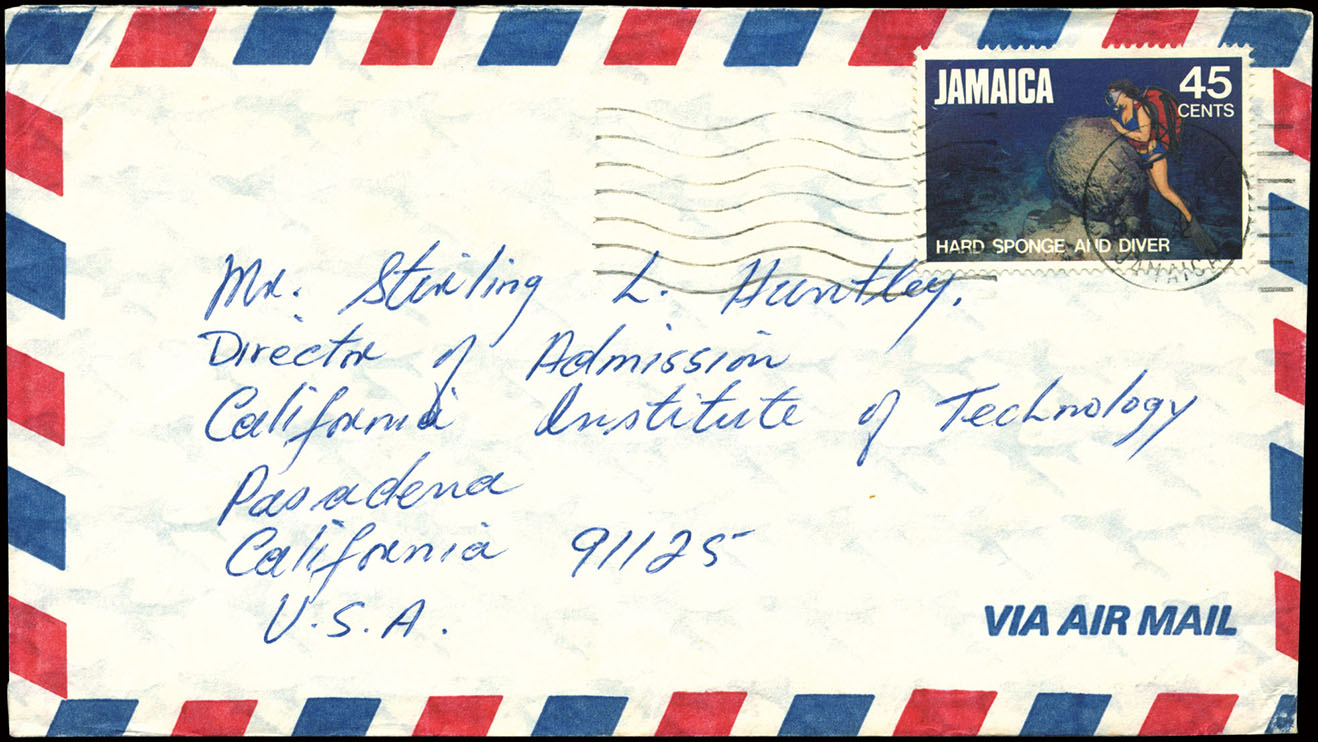 JAMAICA
45
CENTS
HARD SPONGE AND DIVER
JAMAICA
Mr. Stirling L. Huntley.
Director of Admission
California Institute of Technology
Pasadena
California 91125
U.S.A.
VIA AIR MAIL